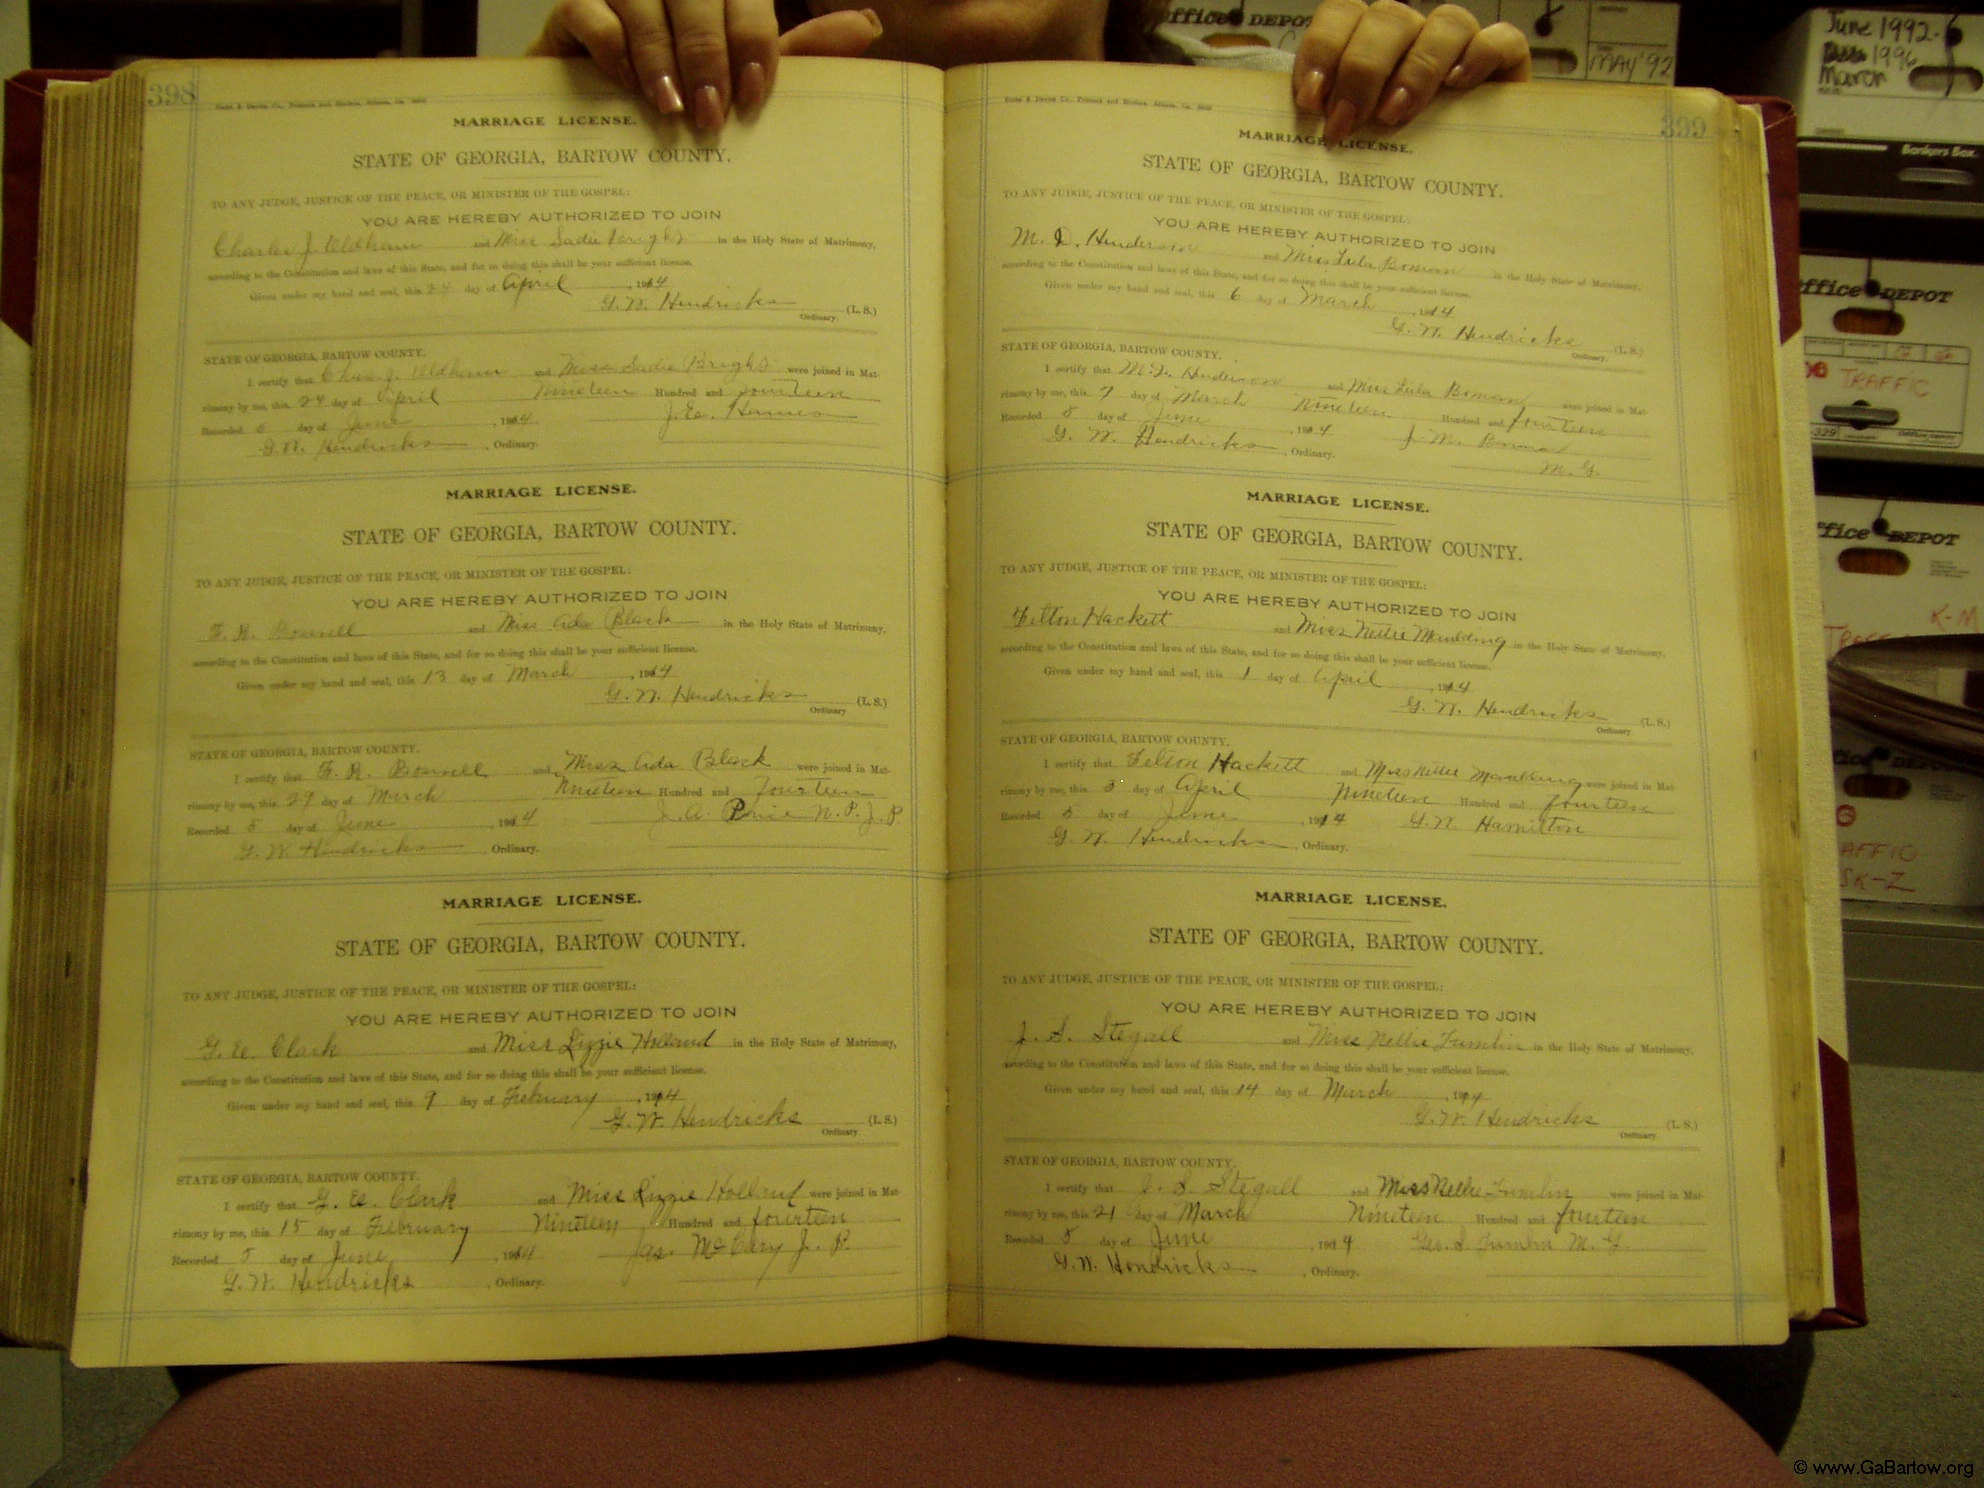 398
MARRIAGE LICENSE.
STATE OF GEORGIA, BARTOW COUNTY.
TO ANY JUDGE, JUSTICE OF THE PEACE, OR MINISTER OF THE GOSPEL:
YOU ARE HEREBY AUTHORIZED TO JOIN
Charles J. Oldham and Miss Sadie Bright in the Holy State of Matrimony,
according to the Constitution and laws of this State, and for so doing this shall be your sufficient license.
Given under my hand and seal, this 24 day of April, 1914
G. W. Hendricks (L. S.)
Ordinary.
STATE OF GEORGIA, BARTOW COUNTY.
I certify that Chas. J. Oldham and Miss Sadie Bright were joined in Mat-
rimony by me, this 24 day of April Nineteen Hundred and fourteen
Recorded day of June, 1914 J. E.
G. W. Hendricks, Ordinary.
MARRIAGE LICENSE.
STATE OF GEORGIA, BARTOW COUNTY.
TO ANY JUDGE, JUSTICE OF THE PEACE, OR MINISTER OF THE GOSPEL:
YOU ARE HEREBY AUTHORIZED TO JOIN
F. R. and Miss Ada Black in the Holy State of Matrimony,
according to the Constitution and laws of this State, and for so doing this shall be your sufficient license.
Given under my hand and seal, this 13 day of March, 1914
G. W. Hendricks (L. S.)
Ordinary
STATE OF GEORGIA, BARTOW COUNTY.
I certify that F. R. and Miss Ada Black were joined in Mat-
rimony by me, this 29 day of March Nineteen Hundred and fourteen
Recorded 5 day of June, 1914 J. A. Price N. P. J. P.
G. W. Hendricks, Ordinary.
MARRIAGE LICENSE.
STATE OF GEORGIA, BARTOW COUNTY.
TO ANY JUDGE, JUSTICE OF THE PEACE, OR MINISTER OF THE GOSPEL:
YOU ARE HEREBY AUTHORIZED TO JOIN
G. E. Clark and Miss Lizzie Holland in the Holy State of Matrimony,
according to the Constitution and laws of this State, and for so doing this shall be your sufficient license.
Given under my hand and seal, this 9 day of February, 1914
G. W. Hendricks (L. S.)
Ordinary
STATE OF GEORGIA, BARTOW COUNTY.
I certify that G. E. Clark and Miss Lizzie Holland were joined in Mat-
rimony by me, this 15 day of February Nineteen Hundred and fourteen
Recorded 5 day of June, 1914 Jas. McCary J. P.
G. W. Hendricks, Ordinary.
399
MARRIAGE LICENSE.
STATE OF GEORGIA, BARTOW COUNTY.
TO ANY JUDGE, JUSTICE OF THE PEACE, OR MINISTER OF THE GOSPEL:
YOU ARE HEREBY AUTHORIZED TO JOIN
M. D. Henderson and Miss Lula Bowman in the Holy State of Matrimony,
according to the Constitution and laws of this State, and for so doing this shall be your sufficient license.
Given under my hand and seal, this 6 day of March, 1914
G. W. Hendricks (L. S.)
Ordinary.
STATE OF GEORGIA, BARTOW COUNTY.
I certify that M. D. Henderson and Miss Lula Bowman were joined in Mat-
rimony by me, this 7 day of March Nineteen Hundred and fourteen
Recorded 5 day of June, 1914 J. M.
G. W. Hendricks, Ordinary. M. G.
MARRIAGE LICENSE.
STATE OF GEORGIA, BARTOW COUNTY.
TO ANY JUDGE, JUSTICE OF THE PEACE, OR MINISTER OF THE GOSPEL:
YOU ARE HEREBY AUTHORIZED TO JOIN
Felton Hackett and Miss Nellie Maulding in the Holy State of Matrimony,
according to the Constitution and laws of this State, and for so doing this shall be your sufficient license.
Given under my hand and seal, this 1 day of April, 1914
G. W. Hendricks (L. S.)
Ordinary
STATE OF GEORGIA, BARTOW COUNTY.
I certify that Felton Hackett and Miss Nellie Maulding were joined in Mat-
rimony by me, this 5 day of April Nineteen Hundred and fourteen
Recorded 5 day of June, 1914 G. W. Hamilton
G. W. Hendricks, Ordinary.
MARRIAGE LICENSE.
STATE OF GEORGIA, BARTOW COUNTY.
TO ANY JUDGE, JUSTICE OF THE PEACE, OR MINISTER OF THE GOSPEL:
YOU ARE HEREBY AUTHORIZED TO JOIN
J. S. Stegall and Miss Nellie Tumlin in the Holy State of Matrimony,
according to the Constitution and laws of this State, and for so doing this shall be your sufficient license.
Given under my hand and seal, this 14 day of March, 1914
G. W. Hendricks (L. S.)
Ordinary
STATE OF GEORGIA, BARTOW COUNTY.
I certify that J. S. Stegall and Miss Nellie Tumlin were joined in Mat-
rimony by me, this 21 day of March Nineteen Hundred and fourteen
Recorded 5 day of June, 1914 Geo. S. Tumlin M. G.
G. W. Hendricks, Ordinary.
Office DEPOT
MAY '92
June 1992-
1996
March
Bankers Box
Office DEPOT
TRAFFIC
Office DEPOT
K-M
© www.GaBartow.org